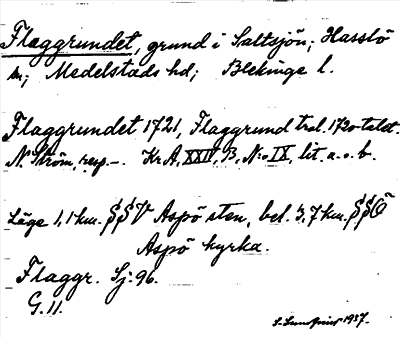 Flaggrundet, grund i Saltsjön; Hasslö
sn; Medelstads hd; Blekinge l.
Flaggrundet 1721, Flaggrund trol. 1720-talet.
N. Ström, resp. –. Kr A, XXIV, B, N:o IX, lit. a. o. b.
Läge 1,1 km. SSV Aspö sten, bel. 3,7 km. SSÖ
Aspö kyrka.
Flaggr. Sj. 96.
G. 11.
1937.